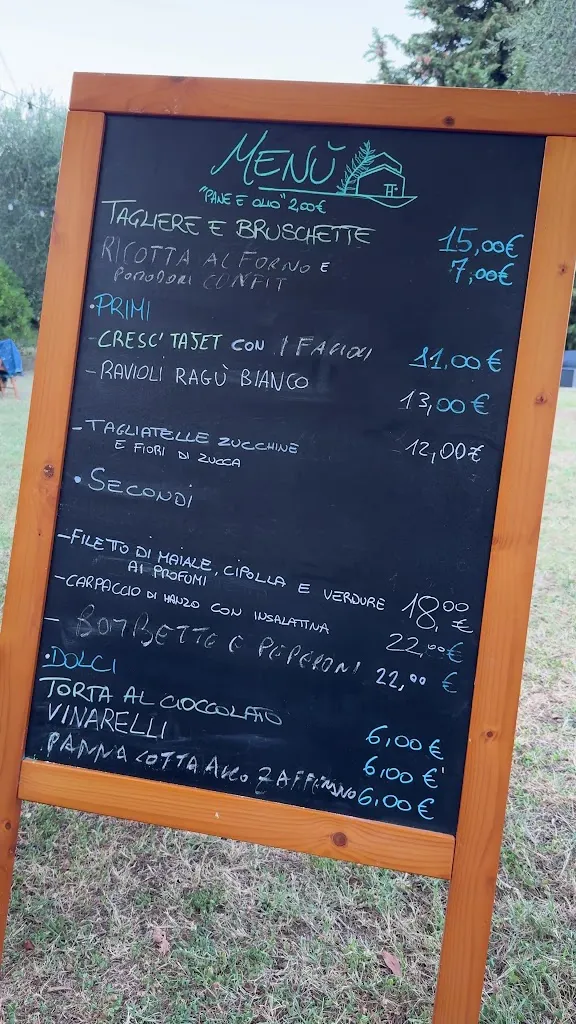 MENÙ
"PANE E OLIO" 2,00€
TAGLIERE E BRUSCHETTE 15,00€
RICOTTA AL FORNO E 7,00€
POMODORI CONFIT
•PRIMI
-CRESC'TAJET CON I FAGIOLI 11,00€
-RAVIOLI RAGÙ BIANCO 13,00€
-TAGLIATELLE ZUCCHINE 12,00€
E FIORI DI ZUCCA
•SECONDI
-FILETTO DI MAIALE, CIPOLLA E VERDURE 18,00€
AI PROFUMI
-CARPACCIO DI MANZO CON INSALATINA 22,00€
- BOMBETTE E PEPERONI 22,00€
•DOLCI
TORTA AL CIOCCOLATO 6,00€
VINARELLI 6,00€
PANNA COTTA ALLO ZAFFERANO 6,00€